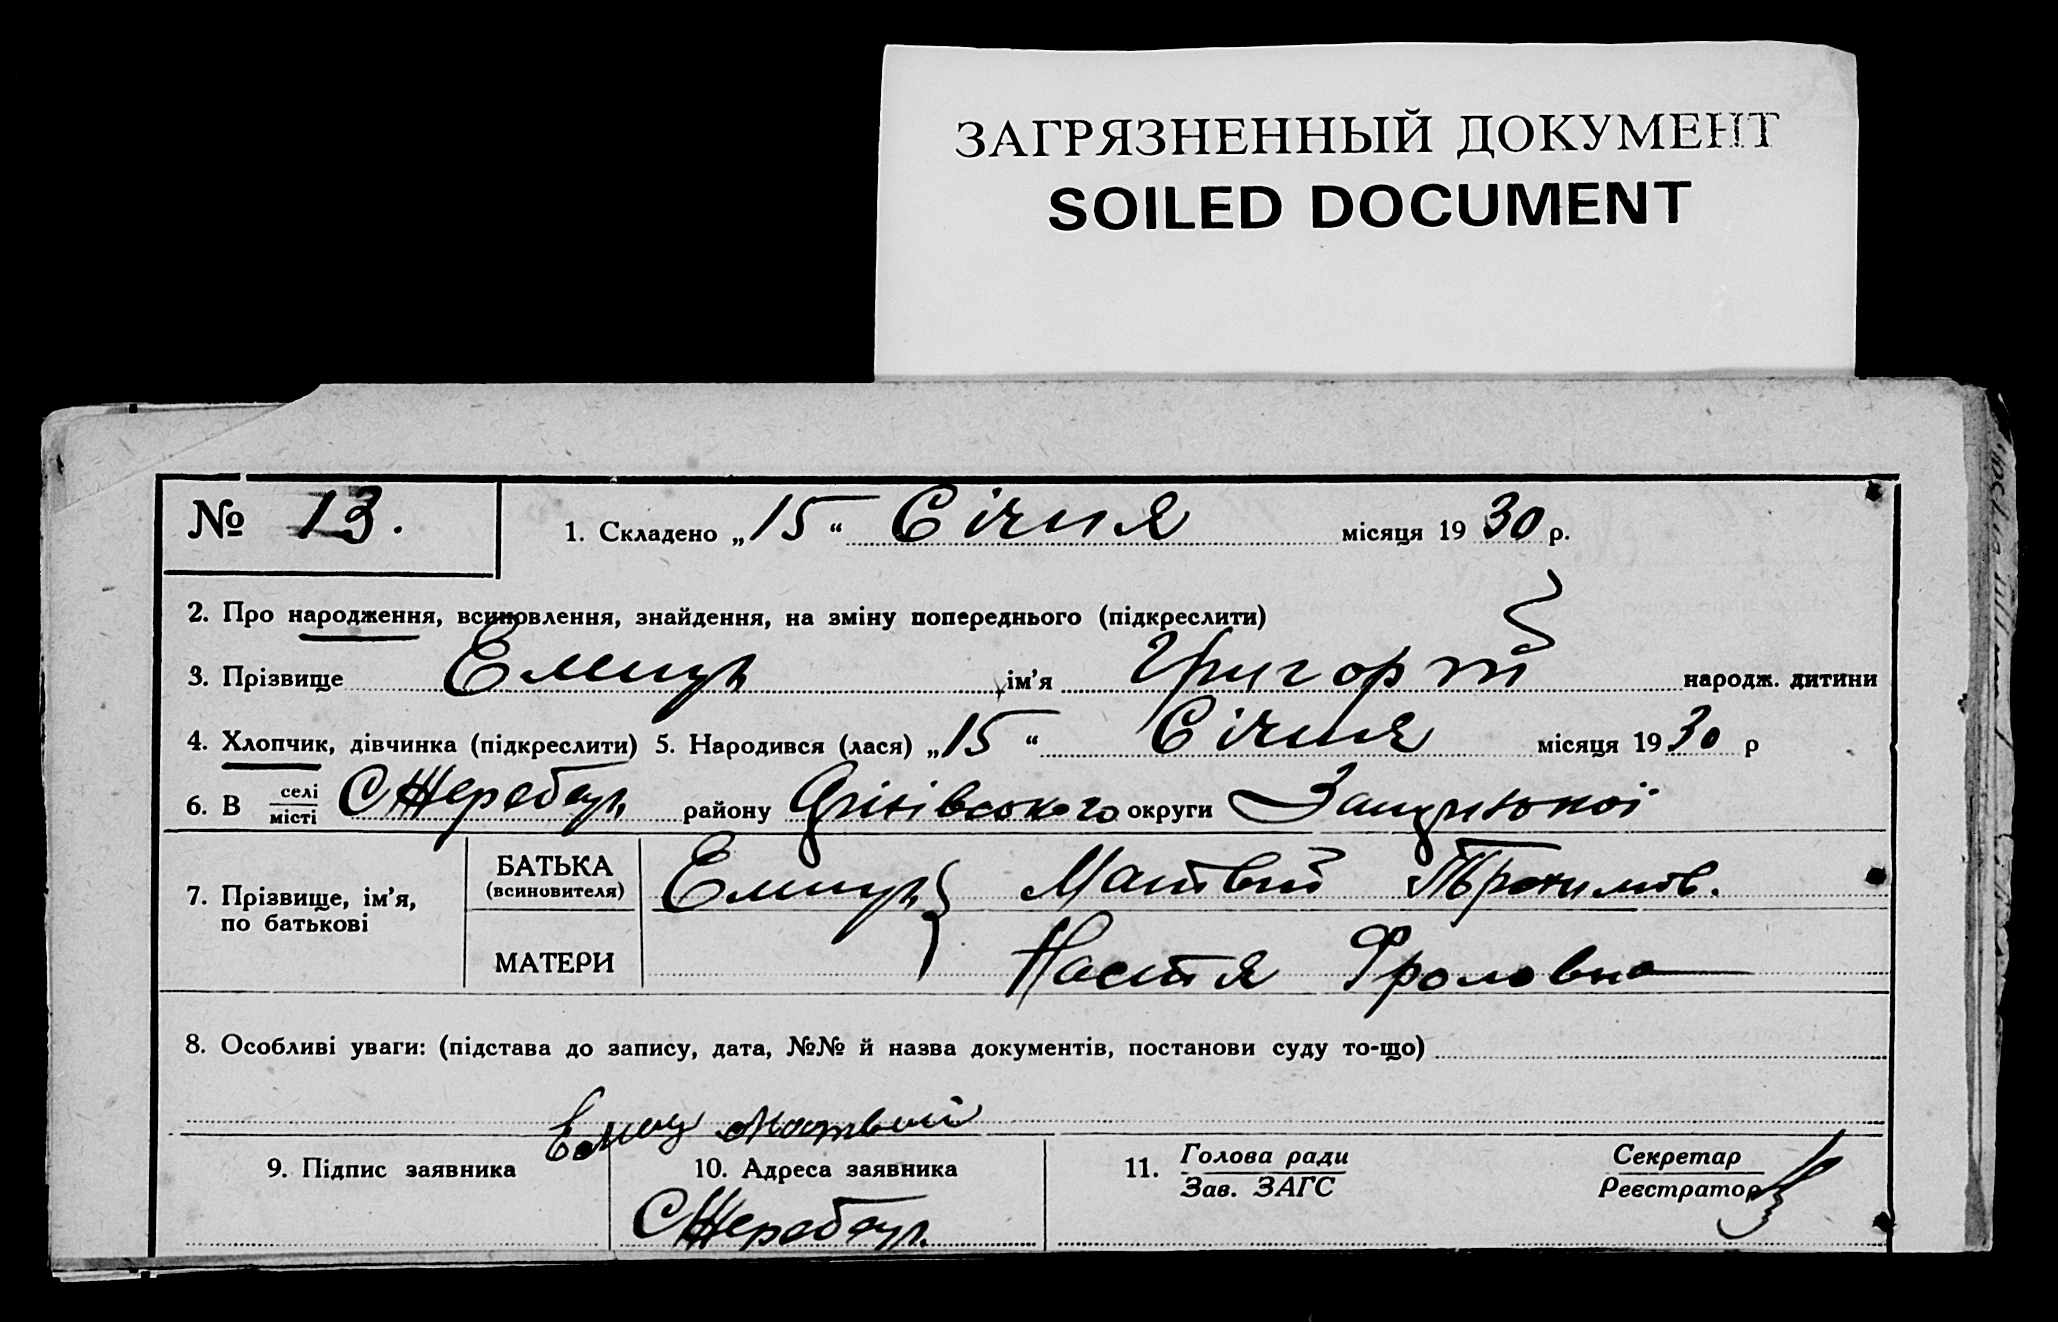 ЗАГРЯЗНЕННЫЙ ДОКУМЕНТ
SOILED DOCUMENT
№ 13.
1. Складено „15“ Січня місяця 1930 р.
2. Про народження, всиновлення, знайдення, на зміну попереднього (підкреслити)
3. Прізвище ім'я Григорій народж. дитини
4. Хлопчик, дівчинка (підкреслити) 5. Народився (лася) „15“ Січня місяця 1930 р
6. В селі/місті С Жеребець району округи
7. Прізвище, ім'я, по батькові
БАТЬКА (всиновителя) Матвій Трохимов.
МАТЕРИ Настя Фроловна
8. Особливі уваги: (підстава до запису, дата, №№ й назва документів, постанови суду то-що)
Матвий
9. Підпис заявника
10. Адреса заявника
11. Голова ради/Зав. ЗАГС
Секретар/Реєстратор
С Жеребець.